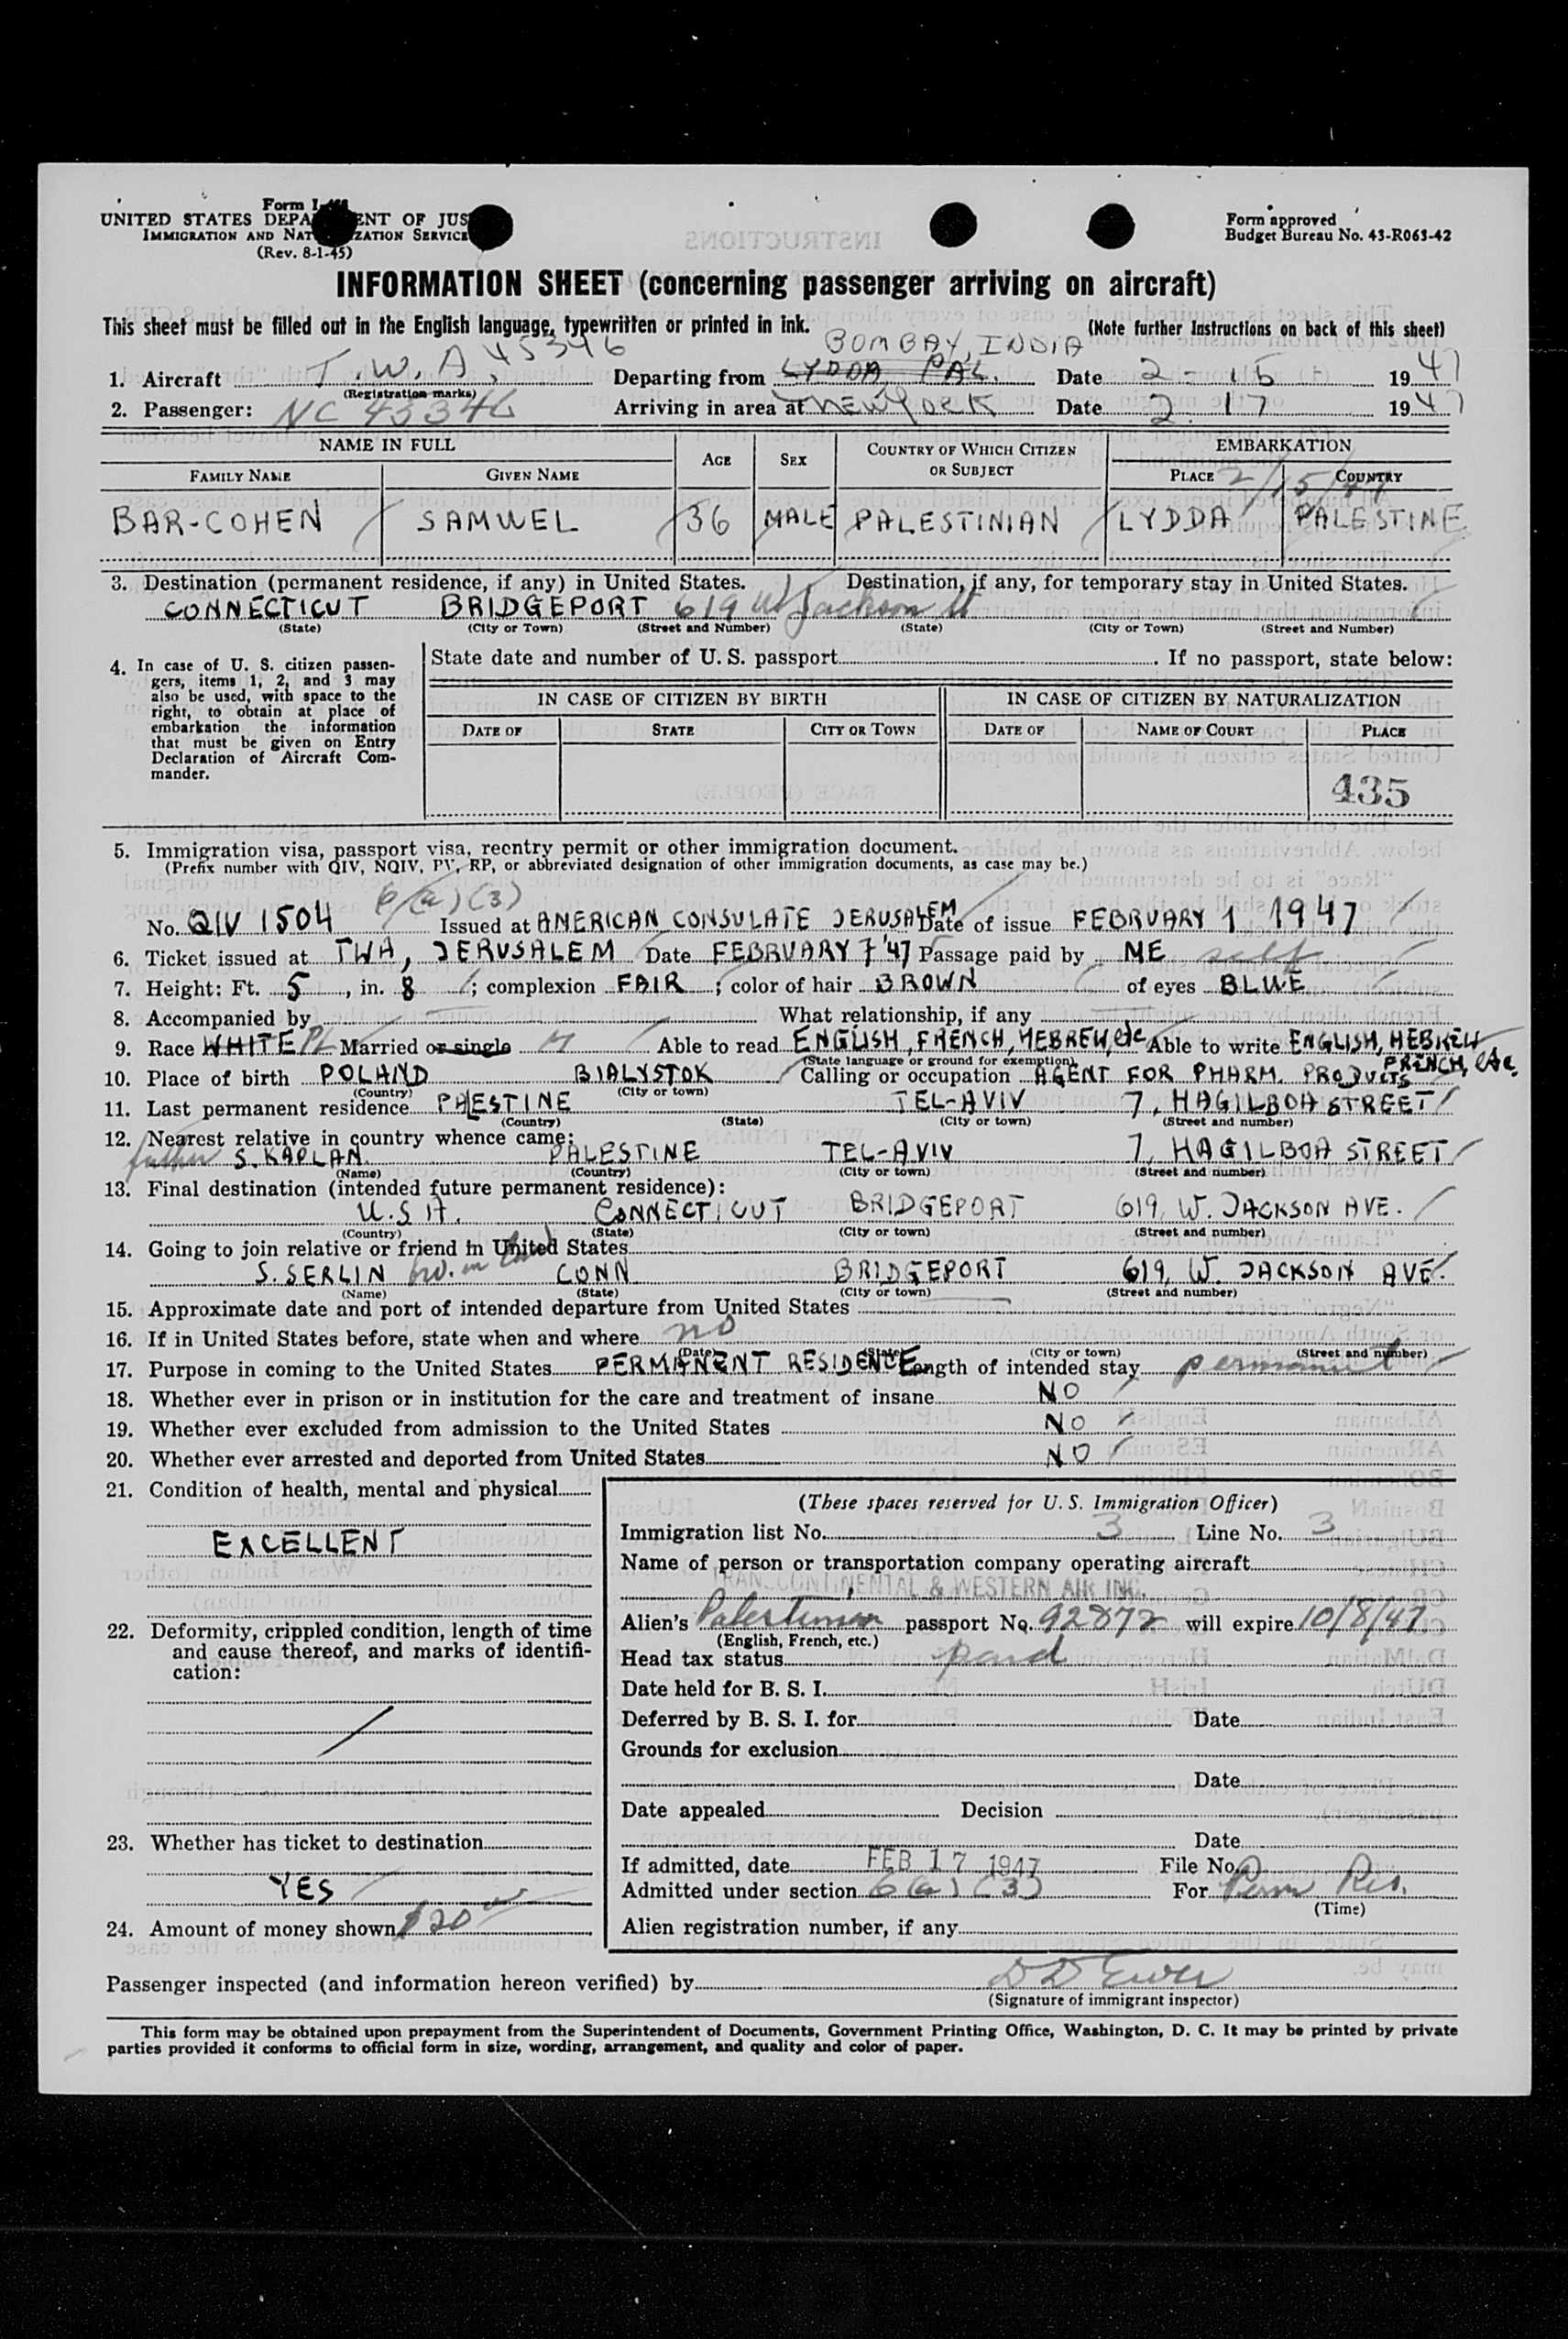 Form I-466
UNITED STATES DEPARTMENT OF JUSTICE
IMMIGRATION AND NATURALIZATION SERVICE
(Rev. 8-1-45)
Form approved
Budget Bureau No. 43-R063-42
INFORMATION SHEET (concerning passenger arriving on aircraft)
This sheet must be filled out in the English language, typewritten or printed in ink.
(Note further Instructions on back of this sheet)
BOMBAY, INDIA
1. Aircraft T.W.A, 45346 Departing from LYDDA, PAL. Date 2 - 15 1947
(Registration marks)
2. Passenger: NC 45346 Arriving in area at NEW YORK Date 2. 17 1947
NAME IN FULL AGE SEX COUNTRY OF WHICH CITIZEN OR SUBJECT EMBARKATION
FAMILY NAME GIVEN NAME PLACE 2/15/47 COUNTRY
BAR-COHEN SAMUEL 36 MALE PALESTINIAN LYDDA PALESTINE
3. Destination (permanent residence, if any) in United States. Destination, if any, for temporary stay in United States.
CONNECTICUT BRIDGEPORT 619 W Jackson
(State) (City or Town) (Street and Number) (State) (City or Town) (Street and Number)
4. In case of U. S. citizen passengers, items 1, 2, and 3 may also be used, with space to the right, to obtain at place of embarkation the information that must be given on Entry Declaration of Aircraft Commander.
State date and number of U. S. passport. If no passport, state below:
IN CASE OF CITIZEN BY BIRTH IN CASE OF CITIZEN BY NATURALIZATION
DATE OF STATE CITY OR TOWN DATE OF NAME OF COURT PLACE
435
5. Immigration visa, passport visa, reentry permit or other immigration document.
(Prefix number with QIV, NQIV, PV, RP, or abbreviated designation of other immigration documents, as case may be.)
6(a)(3)
No. QIV 1504 Issued at AMERICAN CONSULATE JERUSALEM Date of issue FEBRUARY 1 1947
6. Ticket issued at TWA, JERUSALEM Date FEBRUARY 7 '47 Passage paid by ME self
7. Height: Ft. 5, in. 8; complexion FAIR; color of hair BROWN of eyes BLUE
8. Accompanied by What relationship, if any
9. Race WHITE PL Married or single M Able to read ENGLISH, FRENCH, HEBREW, etc Able to write ENGLISH, HEBREW
(State language or ground for exemption) FRENCH, etc.
10. Place of birth POLAND BIALYSTOK Calling or occupation AGENT FOR PHARM. PRODUCTS
(Country) (City or town)
11. Last permanent residence PALESTINE TEL-AVIV 7, HAGILBOA STREET
(Country) (State) (City or town) (Street and number)
12. Nearest relative in country whence came:
father S. KAPLAN PALESTINE TEL-AVIV 7, HAGILBOA STREET
(Name) (Country) (City or town) (Street and number)
13. Final destination (intended future permanent residence):
U.S.A. CONNECTICUT BRIDGEPORT 619, W. JACKSON AVE.
(Country) (State) (City or town) (Street and number)
14. Going to join relative or friend in United States
S. SERLIN bro. in law CONN BRIDGEPORT 619, W. JACKSON AVE.
(Name) (State) (City or town) (Street and number)
15. Approximate date and port of intended departure from United States
16. If in United States before, state when and where no
(Date) (State) (City or town) (Street and number)
17. Purpose in coming to the United States PERMANENT RESIDENCE Length of intended stay permanent
18. Whether ever in prison or in institution for the care and treatment of insane NO
19. Whether ever excluded from admission to the United States NO
20. Whether ever arrested and deported from United States NO
21. Condition of health, mental and physical
EXCELLENT
22. Deformity, crippled condition, length of time and cause thereof, and marks of identification:
23. Whether has ticket to destination
YES
24. Amount of money shown $20
(These spaces reserved for U. S. Immigration Officer)
Immigration list No. 3 Line No. 3
Name of person or transportation company operating aircraft
TRANSCONTINENTAL & WESTERN AIR INC.
Alien's Palestinian passport No. 92872 will expire 10/8/47
(English, French, etc.)
Head tax status paid
Date held for B. S. I.
Deferred by B. S. I. for Date
Grounds for exclusion
Date
Date appealed Decision
Date
If admitted, date FEB 17 1947 File No.
Admitted under section 6(a)(3) For Perm Res.
(Time)
Alien registration number, if any
Passenger inspected (and information hereon verified) by
(Signature of immigrant inspector)
This form may be obtained upon prepayment from the Superintendent of Documents, Government Printing Office, Washington, D. C. It may be printed by private
parties provided it conforms to official form in size, wording, arrangement, and quality and color of paper.